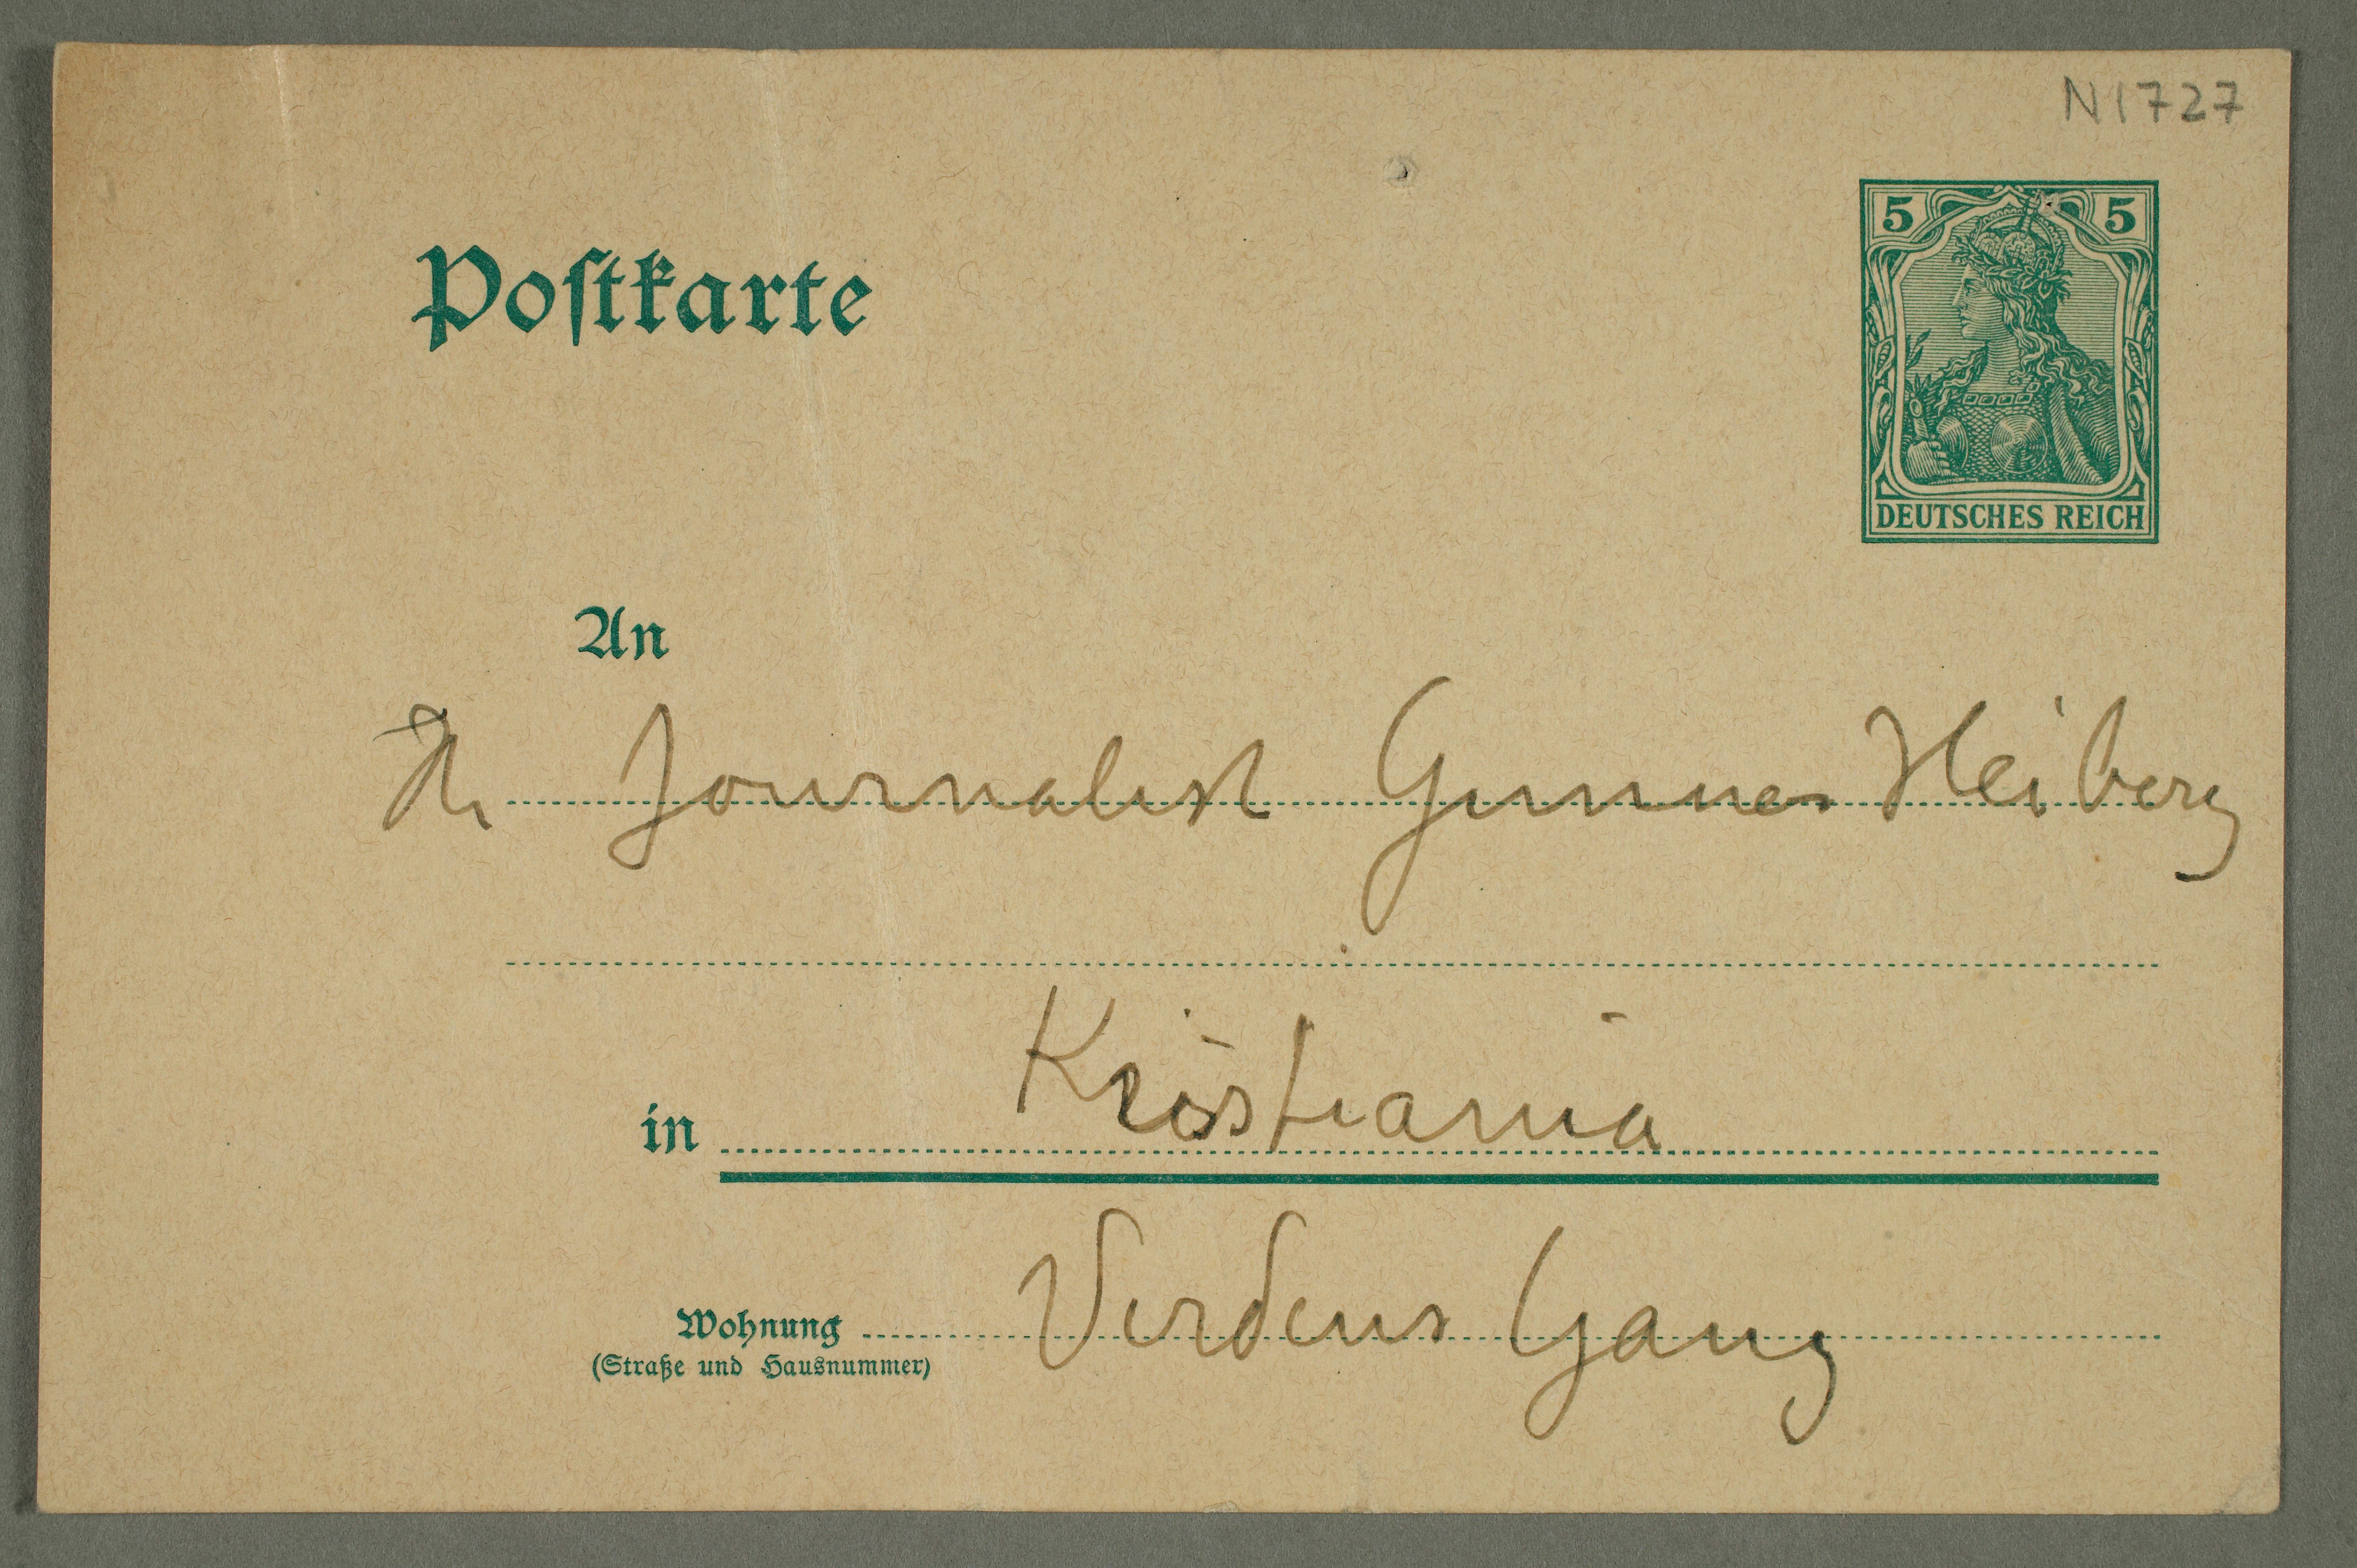 N1727
Postkarte
5 5
DEUTSCHES REICH
An
Hr Journalist Gunner Heiberg
in Kristiania
Wohnung Verdens Gang
(Straße und Hausnummer)